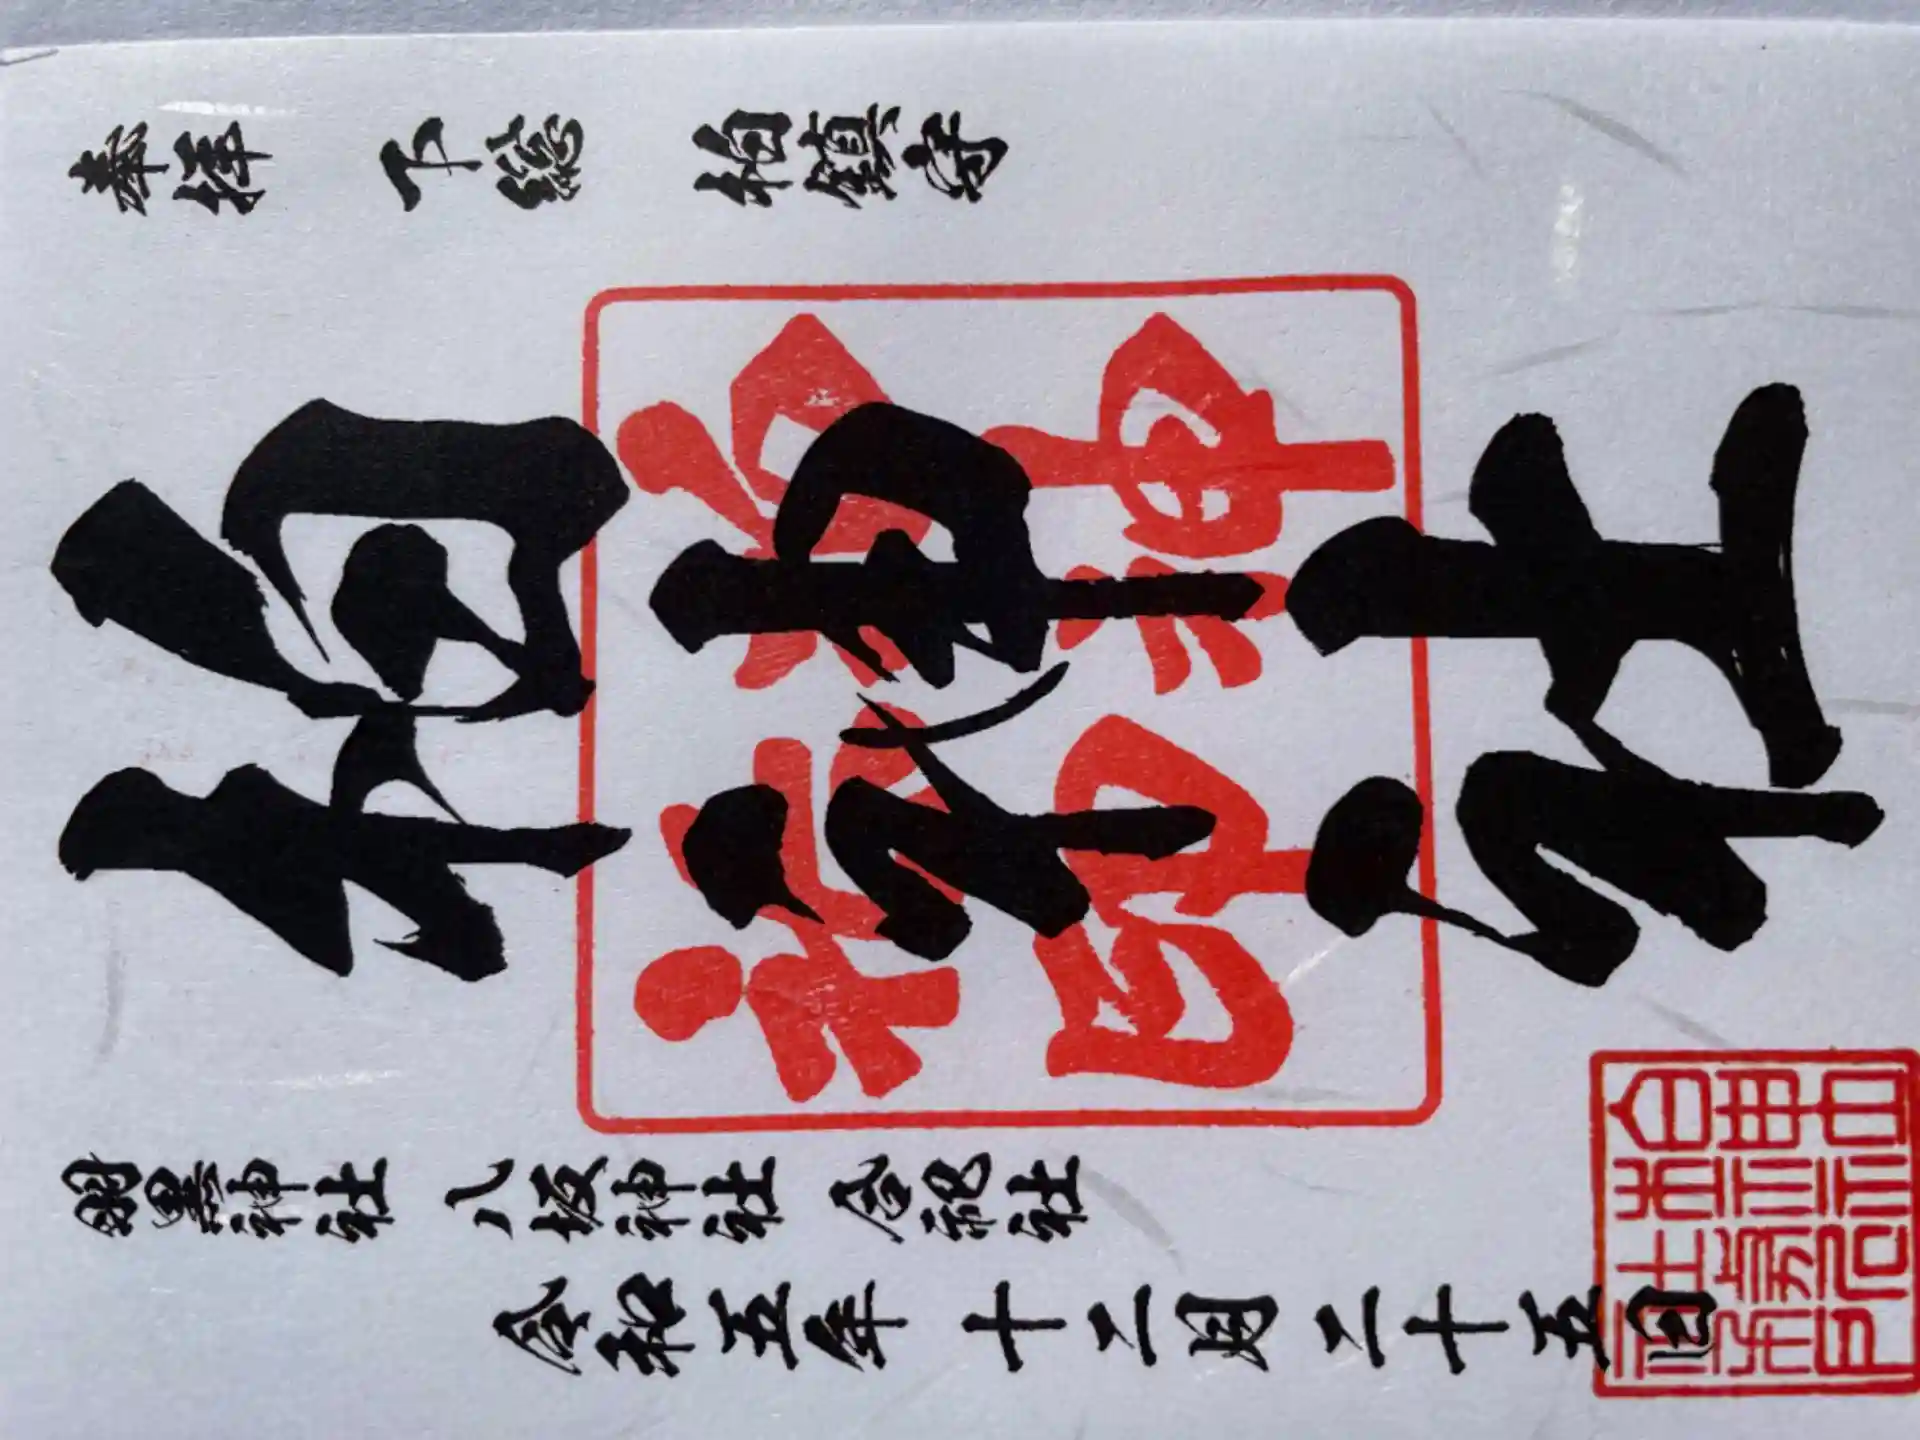 奉拝 下総 柏鎮守
柏神社
柏神
社印
羽黒神社 八坂神社 合祀社
令和五年 十二月 二十五日